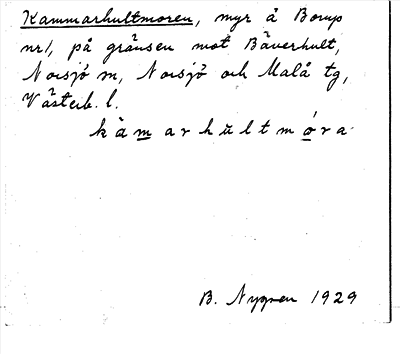 Kammarhultmoren, myr å Borup
nr 1, på gränsen mot Bäverhult,
Norsjö sn, Norsjö och Malå tg,
Västerb. l.
kàmarhultmóra
B. Nygren 1929